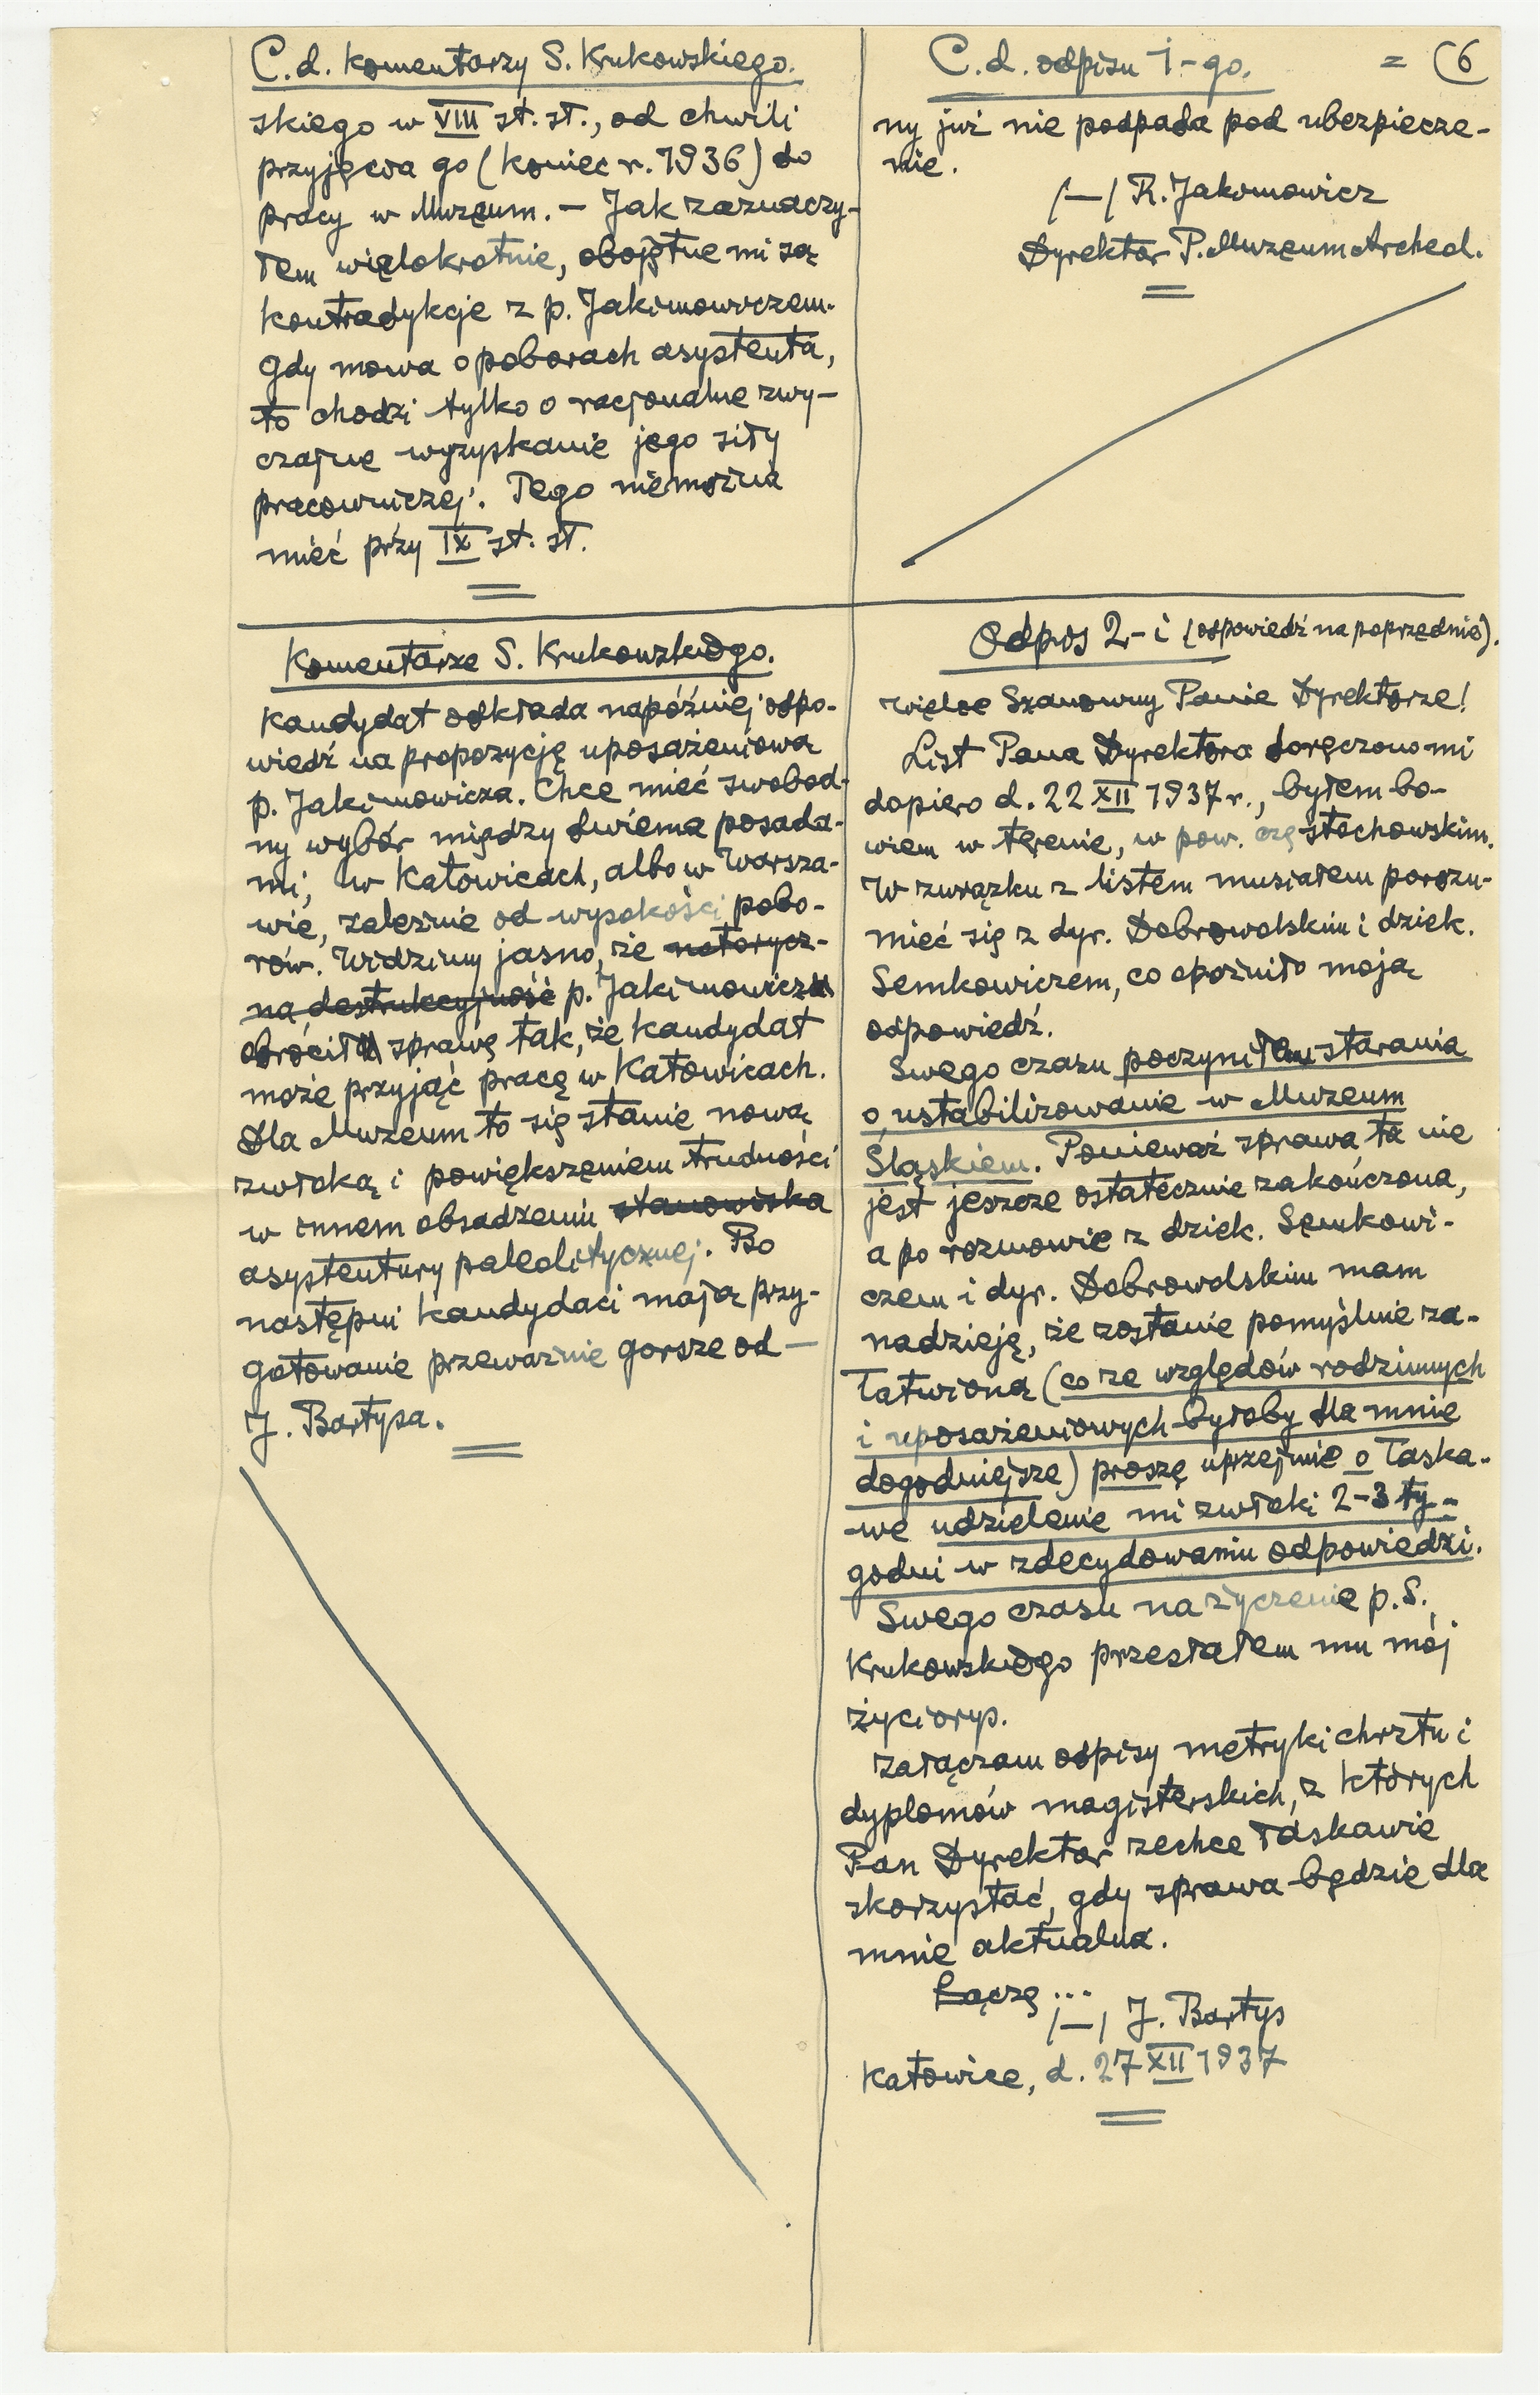 C.d. Komentarzy S. Krukowskiego.
skiego w VIII st. sł., od chwili
przyjęcia go (koniec r. 1936) do
pracy w Muzeum. — Jak zaznaczy-
łem wielokrotnie, obojętne mi są
kontradykcje z p. Jakimowiczem.
Gdy mowa o poborach asystenta,
to chodzi tylko o racjonalne zwy-
czajne wyzyskanie jego siły
pracowniczej. Tego niemożna
mieć przy IX st. sł.
C.d. odpisu 1-go. = (6
ny już nie podpada pod ubezpiecze-
nie.
/—/ R. Jakimowicz
Dyrektor P. Muzeum Archeol.
Komentarze S. Krukowskiego.
Kandydat odkłada napóźniej odpo-
wiedź na propozycję uposażeniową
p. Jakimowicza. Chce mieć swobod-
ny wybór między dwiema posada-
mi, w Katowicach, albo w Warsza-
wie, zależnie od wysokości pobo-
rów. Widzimy jasno, że notorycz-
na destrukcyjność p. Jakimowicz
obrócił sprawę tak, że kandydat
może przyjąć pracę w Katowicach.
Dla Muzeum to się stanie nową
zwłoką i powiększeniem trudności
w innem obsadzeniu stanowiska
asystentury paleolitycznej. Bo
następni kandydaci mają przy-
gotowanie przeważnie gorsze od —
J. Bartysa.
Odpis 2-i (odpowiedź na poprzednie).
Wielce Szanowny Panie Dyrektorze!
List Pana Dyrektora doręczono mi
dopiero d. 22 XII 1937 r., byłem bo-
wiem w terenie, w pow. częstochowskim.
W związku z listem musiałem porozu-
mieć się z dyr. Dobrowolskim i dziek.
Semkowiczem, co opóźniło moją
odpowiedź.
Swego czasu poczyniłem starania
o ustabilizowanie w Muzeum
Śląskiem. Ponieważ sprawa ta nie
jest jeszcze ostatecznie zakończona,
a po rozmowie z dziek. Semkowi-
czem i dyr. Dobrowolskim mam
nadzieję, że zostanie pomyślnie za-
łatwiona (co ze względów rodzinnych
i uposażeniowych byłoby dla mnie
dogodniejsze) proszę uprzejmie o łaska-
we udzielenie mi zwłoki 2-3 ty-
godni w zdecydowaniu odpowiedzi.
Swego czasu na życzenie p. S.
Krukowskiego przesłałem mu mój
życiorys.
Załączam odpisy metryki chrztu i
dyplomów magisterskich, z których
Pan Dyrektor zechce łaskawie
skorzystać, gdy sprawa będzie dla
mnie aktualna.
Łączę ...
/—/ J. Bartys
Katowice, d. 27 XII 1937